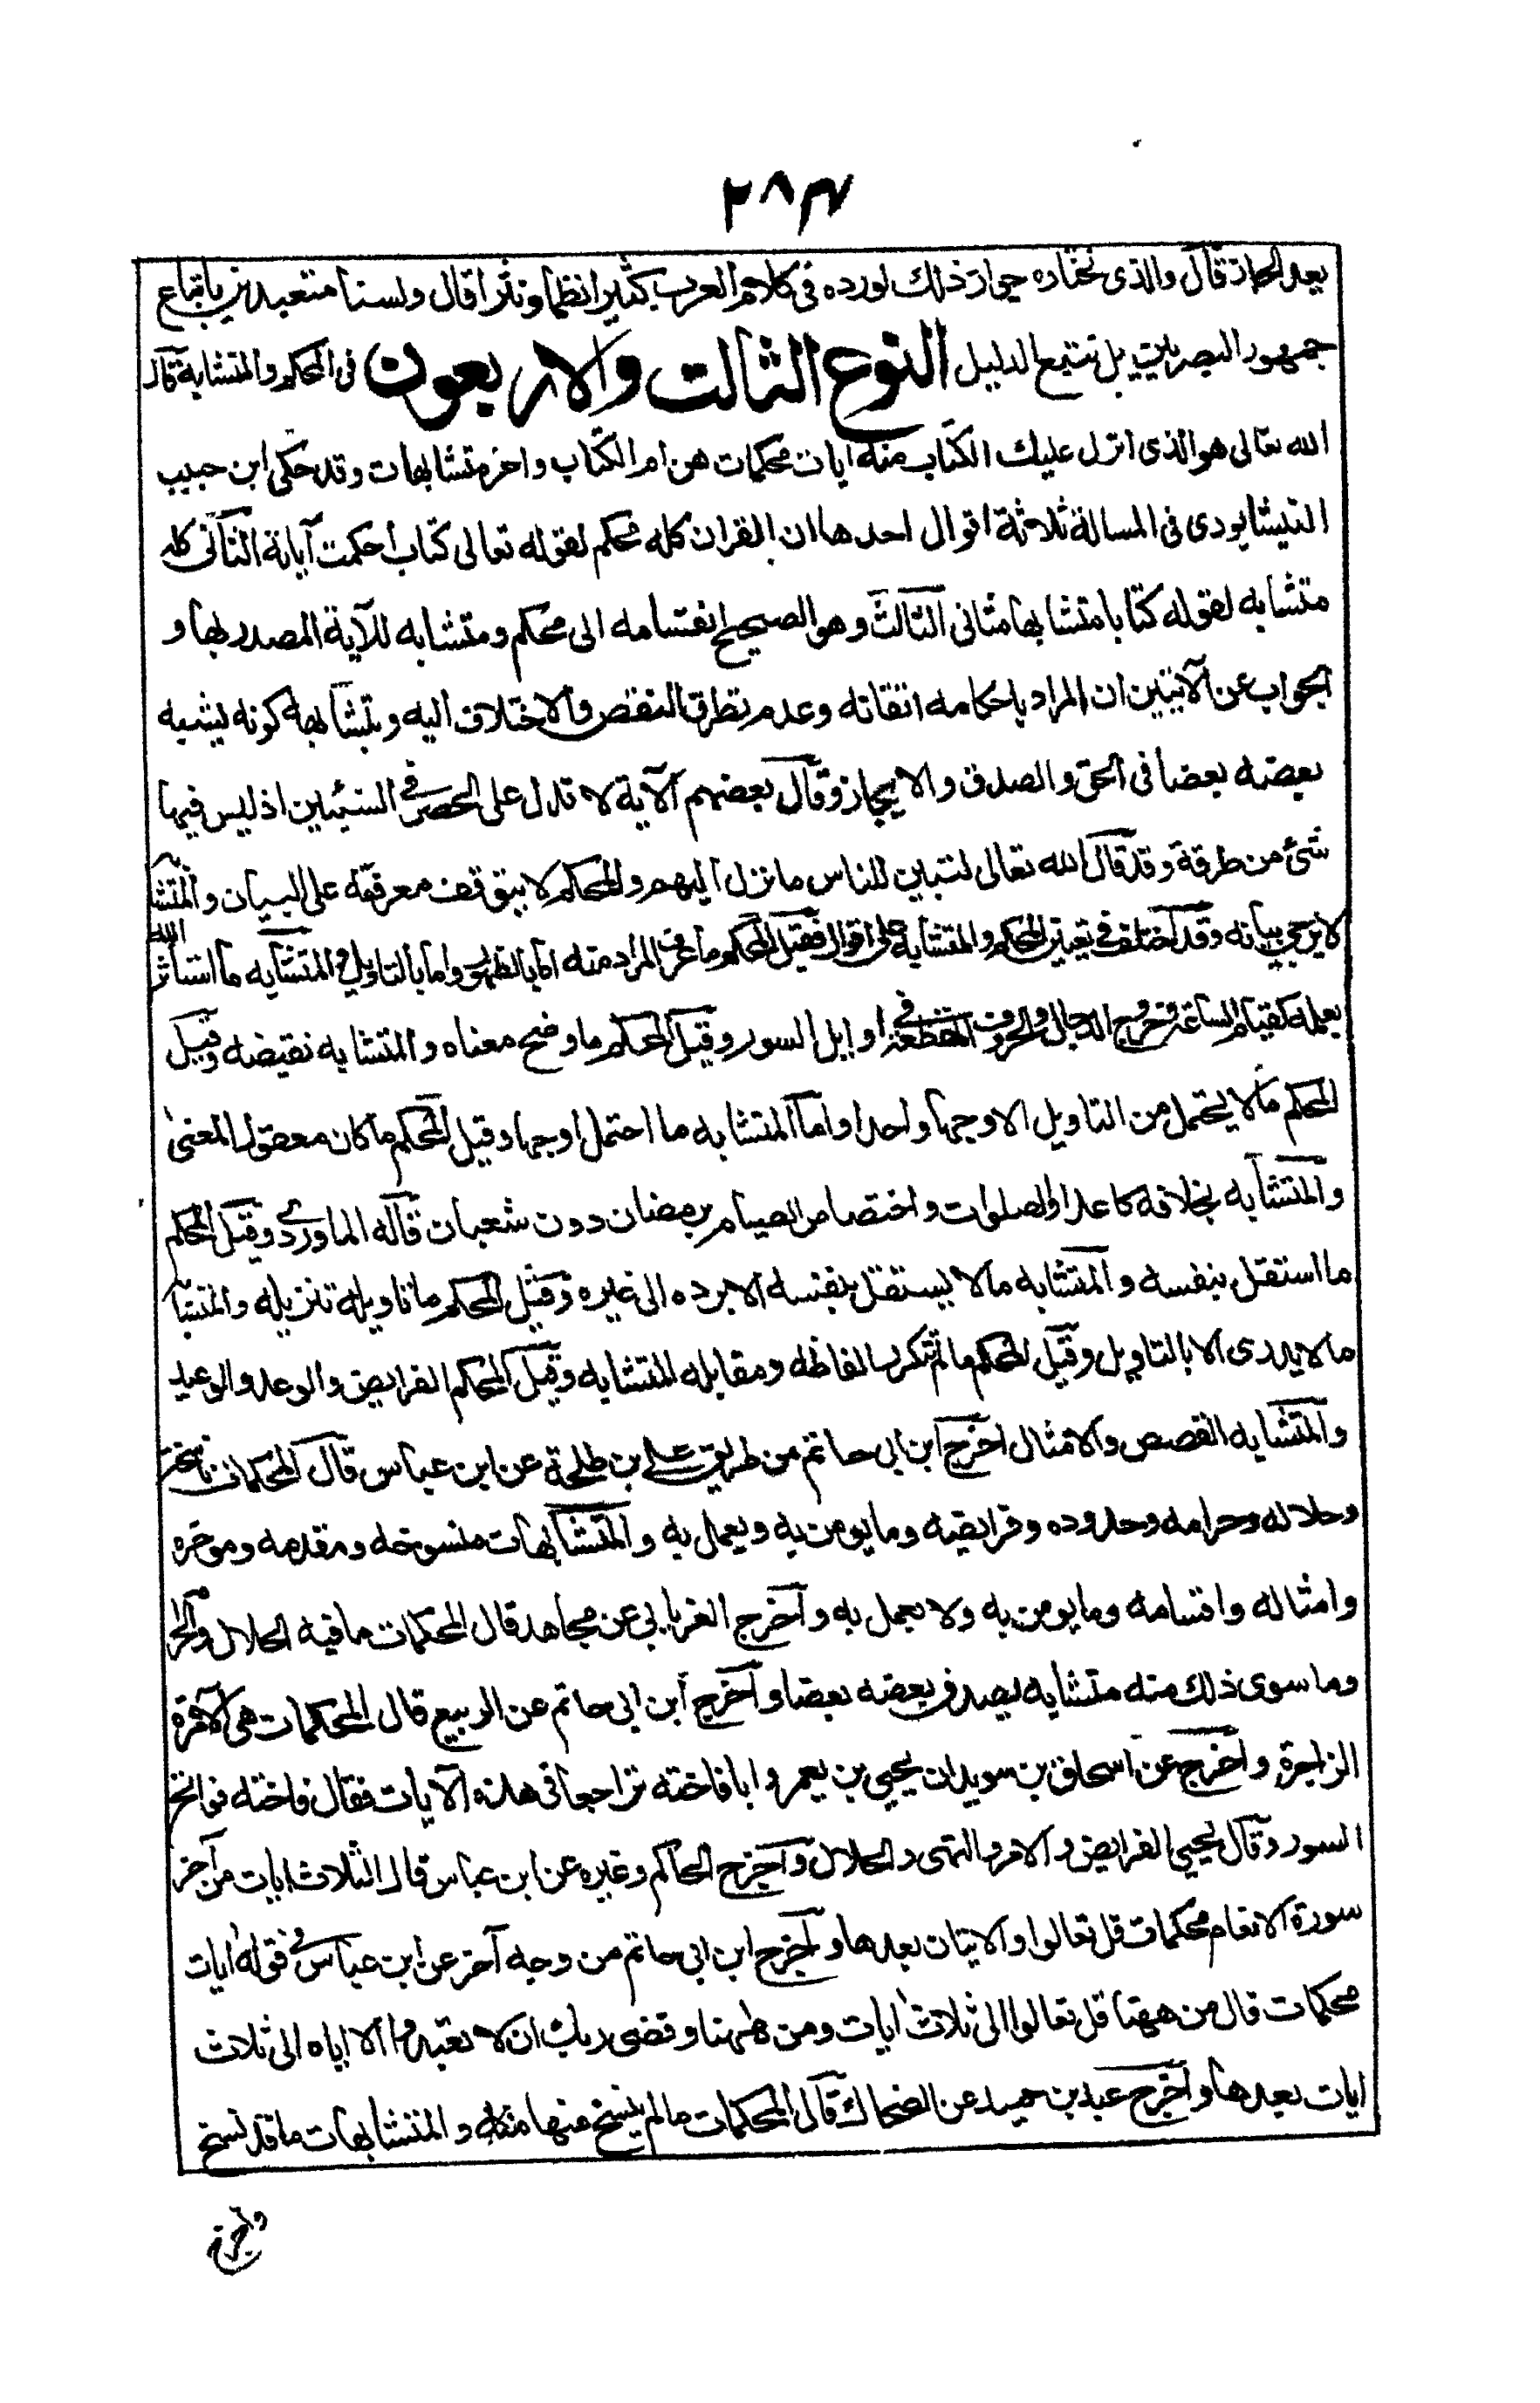 ٢٨٣
بعد الجار قال والذى نختاره جواز ذلك لوروده فى كلام العرب كثيرا نظما ونثرا قال ولسنا متعبدين باتباع
جمهور البصريين بل نتبع الدليل النوع الثالث والاربعون فى المحكم والمتشابه قال
الله تعالى هو الذى انزل عليك الكتاب منه ايات محكمات هن ام الكتاب واخر متشابهات وقد حكى ابن حبيب
النيشابورى فى المسالة ثلاثة اقوال احدها ان القران كله محكم لقوله تعالى كتاب أحكمت آياته الثانى كله
متشابه لقوله كتابا متشابها مثانى الثالث وهو الصحيح انقسامه الى محكم ومتشابه للآية المصدر بها و
الجواب عن الآيتين ان المراد باحكامه اتقانه وعدم تطرق النقص والاختلاف اليه وبتشابهه كونه يشبه
بعضه بعضا فى الحق والصدق والايجاز وقال بعضهم الآية لا تدل على الحصر فى الشيئين اذ ليس فيها
شئ من طرقه وقد قال الله تعالى لتبين للناس ما نزل اليهم والمحكم لا يتوقف معرفته على البيان والمتشابه
لا يرجى بيانه وقد اختلف فى تعيين المحكم والمتشابه على اقوال فقيل المحكم ما عرف المراد منه اما بالظهور واما بالتاويل والمتشابه ما استاثر الله
بعلمه كقيام الساعة وخروج الدجال والحروف المقطعة فى اوايل السور وقيل المحكم ما وضح معناه والمتشابه نقيضه وقيل
المحكم ما لا يحتمل من التاويل الا وجها واحدا واما المتشابه ما احتمل اوجها وقيل المحكم ما كان معقول المعنى
والمتشابه بخلافه كاعداد الصلوات واختصاص الصيام برمضان دون شعبان قاله الماوردى وقيل المحكم
ما استقل بنفسه والمتشابه ما لا يستقل بنفسه الا برده الى غيره وقيل المحكم ما تاويله تنزيله والمتشابه
ما لا يدرى الا بالتاويل وقيل المحكم ما لم تتكرر الفاظه ومقابله المتشابه وقيل المحكم الفرايض والوعد والوعيد
والمتشابه القصص والامثال اخرج ابن ابى حاتم من طريق على ابن طلحة عن ابن عباس قال المحكمات ناسخه
وحلاله وحرامه وحدوده وفرايضه وما يومن به ويعمل به والمتشابهات منسوخه ومقدمه وموخره
وامثاله واقسامه وما يومن به ولا يعمل به وآخرج الفريابى عن مجاهد قال المحكمات ما فيه الحلال والحرام
وما سوى ذلك منه متشابه يصدق بعضه بعضا وآخرج ابن ابى حاتم عن الربيع قال المحكمات هى الآمرة
الزاجرة وآخرج عن اسحاق بن سويد ان يحيى بن يعمر وابا فاخته تراجعا فى هذه الآيات فقال فاخته فواتح
السور وقال يحيى الفرايض والامر والنهى والحلال وآخرج الحاكم وغيره عن ابن عباس قال الثلاث ايات من آخر
سورة الانعام محكمات قل تعالوا والايتان بعدها وآخرج ابن ابى حاتم من وجه آخر عن ابن عباس فى قوله ايات
محكمات قال من ههنا قل تعالوا الى ثلاث ايات ومن ههنا وقضى ربك ان لا تعبدوا الا اياه الى ثلاث
ايات بعدها وآخرج عبد بن حميد عن الضحاك قال المحكمات ما لم ينسخ منها منه والمتشابهات ما قد نسخ